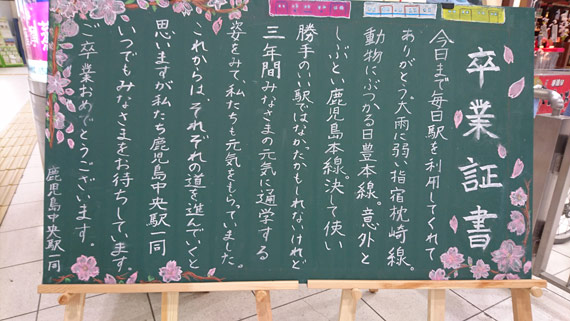 卒業証書
今日まで毎日駅を利用してくれて
ありがとう。大雨に弱い指宿枕崎線。
動物にぶつかる日豊本線。意外と
しぶとい鹿児島本線。決して使い
勝手のいい駅ではなかったかもしれないけれど
三年間みなさまの元気に通学する
姿をみて、私たちも元気をもらっていました。
これからは、それぞれの道を進んでいくと
思いますが私たち鹿児島中央駅一同
いつでもみなさまをお待ちしています。
ご卒業おめでとうございます。
鹿児島中央駅一同